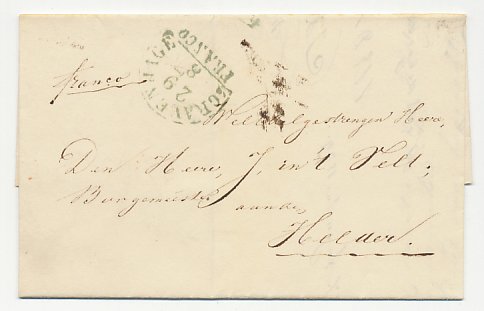 'S GRAVENHAGE
FRANCO
29
8
franco
WelEdelgestrengen Heere,
Den Heere, J. in't Velt,
Burgemeester
aan den
Helder.